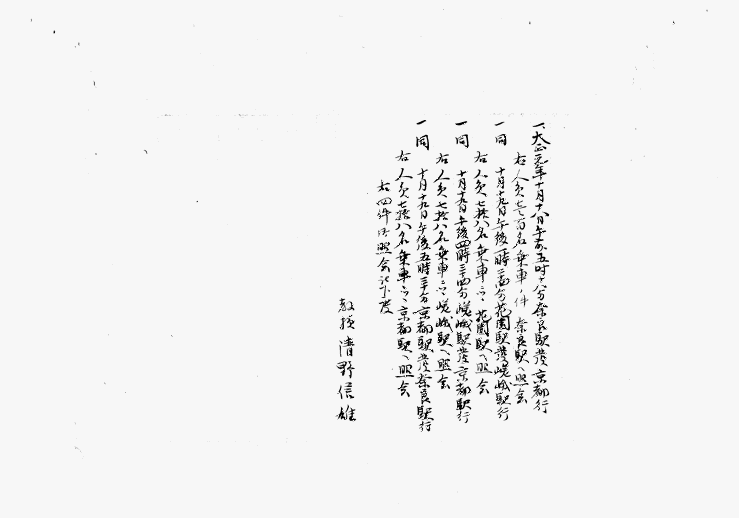 一、大正元年十月十八日午前五時十八分奈良駅発京都行
右人員七百名乗車ノ件 奈良駅ヘ照会
一同 十月十九日午後一時三四分花園駅発嵯峨駅行
右人員七拾八名乗車云々 花園駅ヘ照会
一同 十月十九日午後四時三四分嵯峨駅発京都駅行
右人員七拾八名乗車云々 嵯峨駅ヘ照会
一同 十月十九日午後五時三十分京都駅発奈良駅行
右人員七拾八名乗車云々 京都駅ヘ照会
右四件御照会相成度
教授 清野信雄